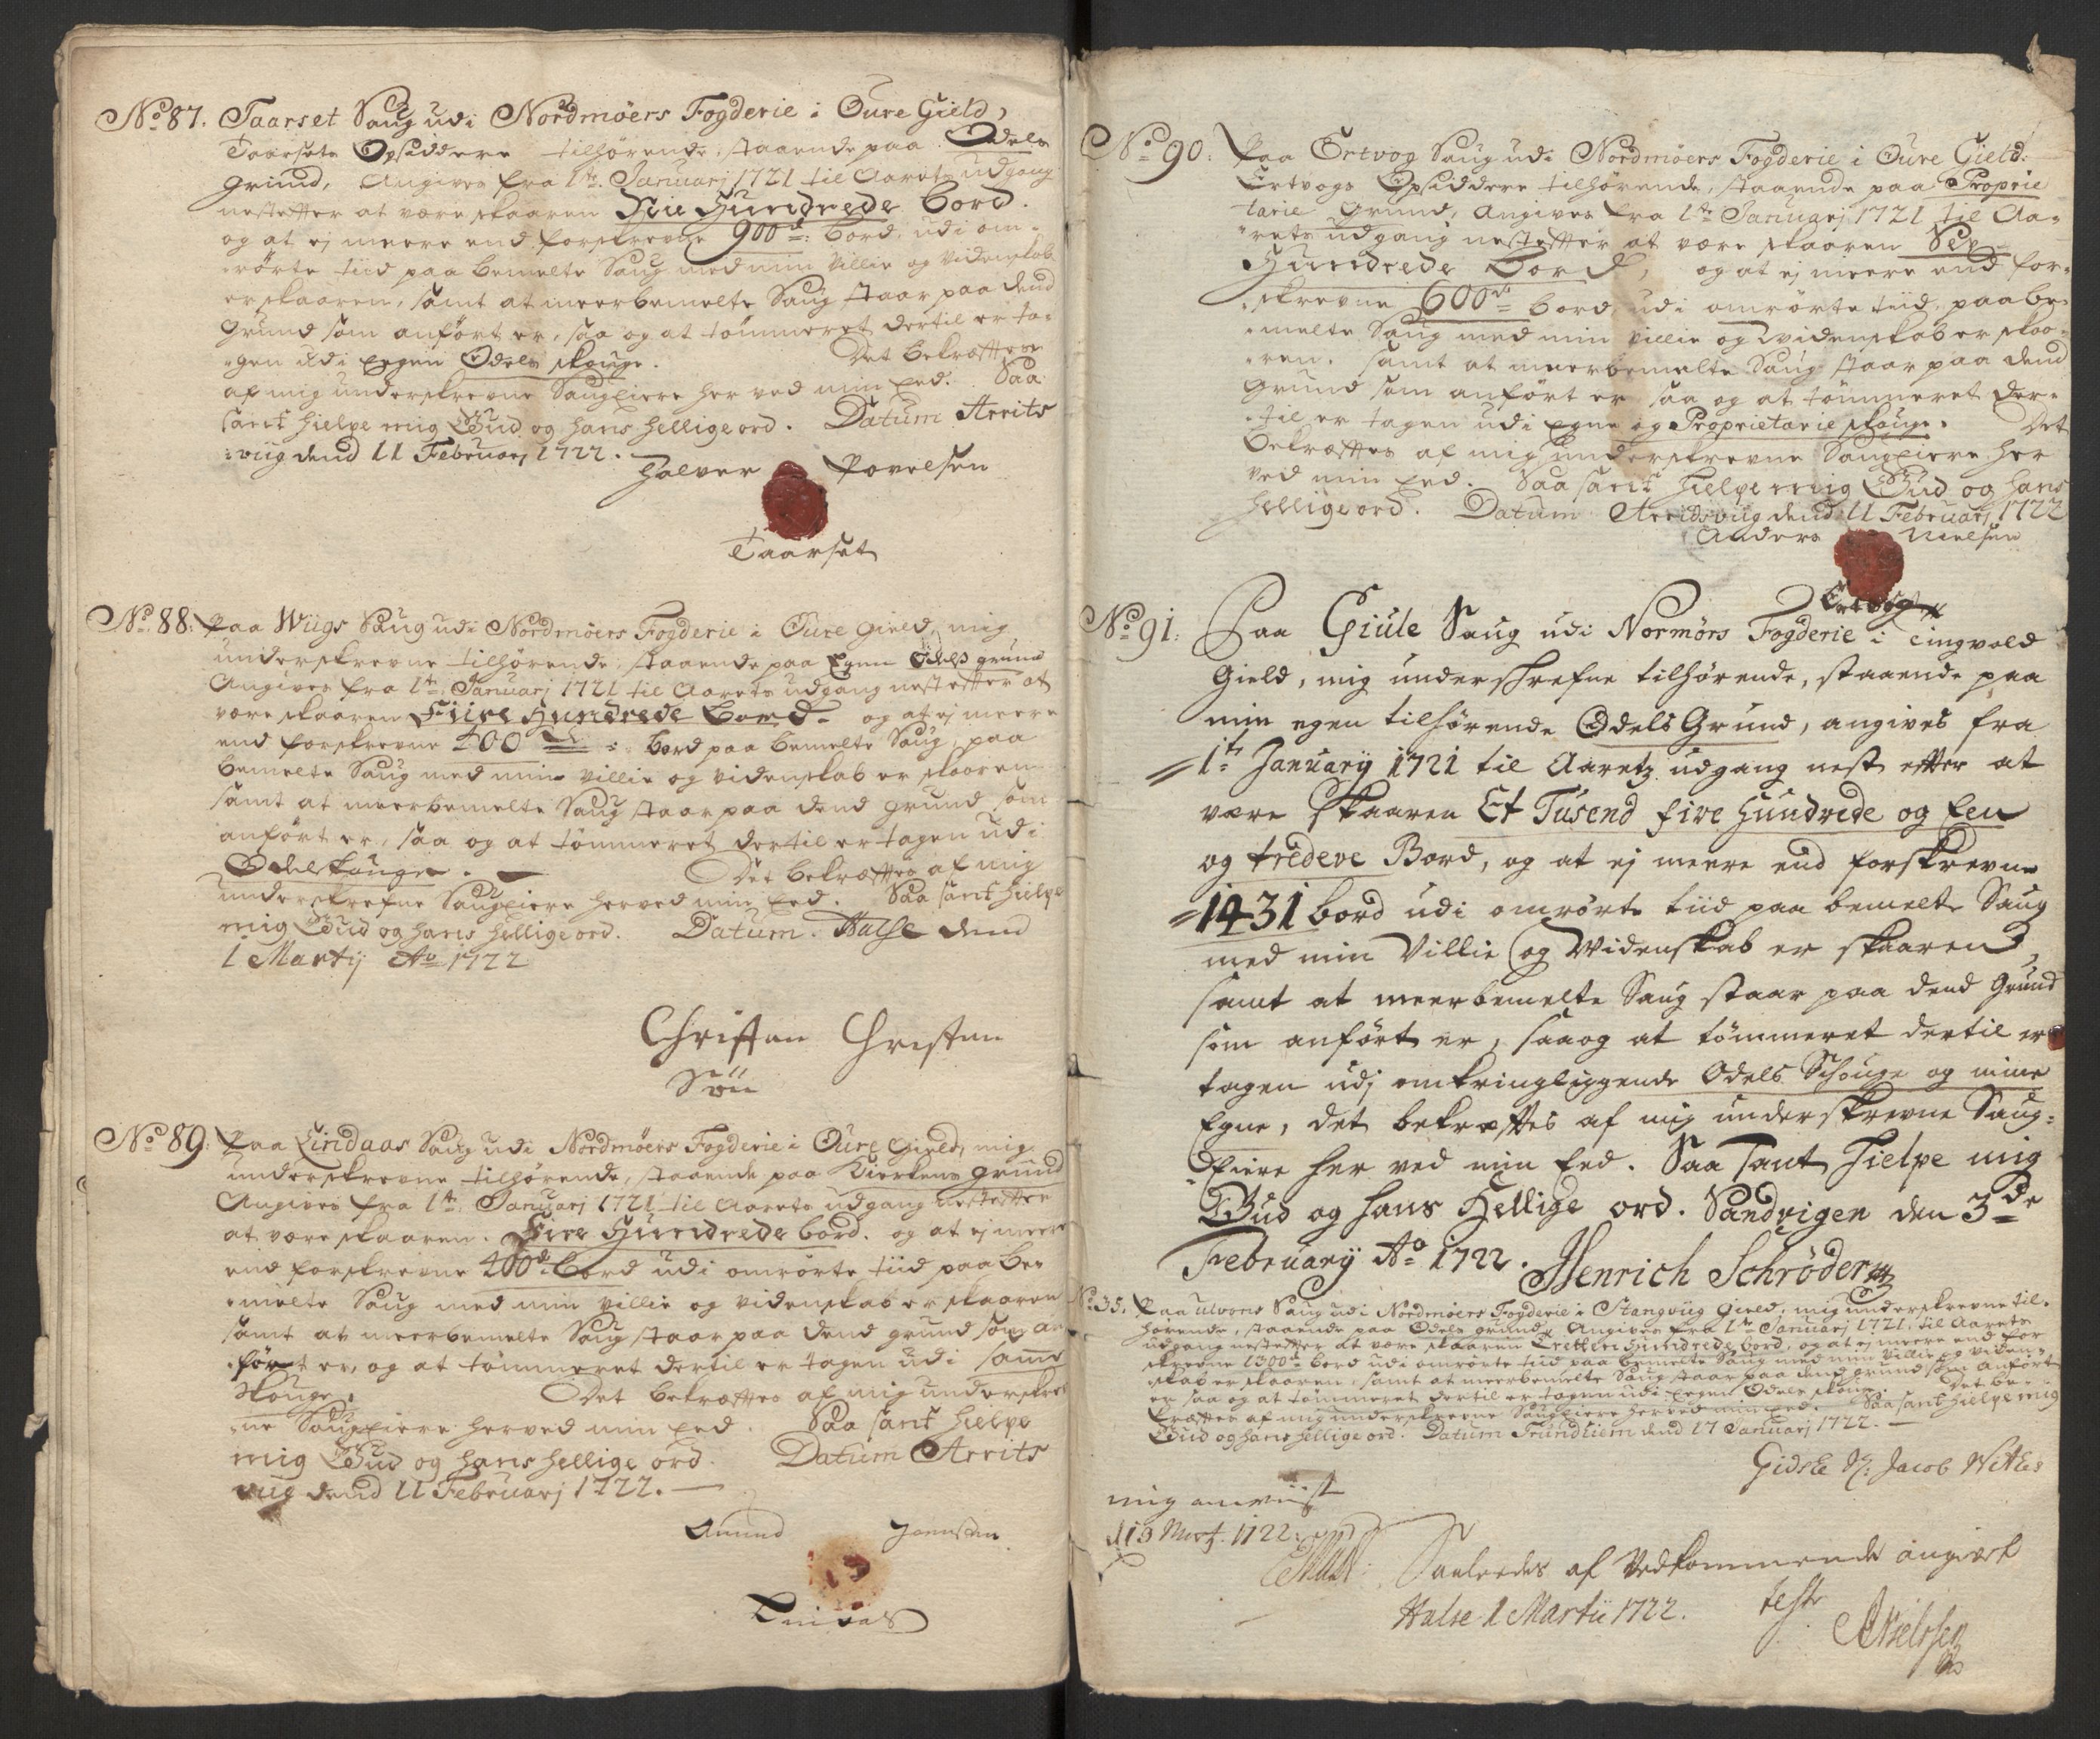 No 87. Taarset Saug udi Nordmöers Fogderie i Öure Gield,
Taarsets Opsiddere tilhörende, staaende paa Odels
Grund, Angives fra 1te Januarj 1721 til Aarets udgang
nestefter at være skaaren Nie Hundrede bord.
og at ej meere end forskrevne 900de: bord, udi om-
-rörte tiid paa bemelte Saug med min villie og videnskab
er skaaren, samt at meerbemelte Saug staar paa dend
Grund som anfört er, saa og at tömmeret dertil er ta-
-gen udi Eegen Odels skouge. Det bekræftes
af mig underskrevne Saugeiere her ved min Eed. Saa
sant hielpe mig Gud og hans hellige ord. Datum Arrits
-viig dend 11 Februarj 1722.
Halver Povelsen
Taarset
No 88. Paa Wiigs Saug udi Nordmöers Fogderie i Öure Gield, mig
underskrevne tilhörende, staaende paa Egen Odels grund
Angives fra 1te Januarj 1721 til Aarets udgang nestefter at
være skaaren Fiire Hundrede Bord. og at ej meere
end forskrevne 400de: bord paa bemelte Saug, paa
bemelte Saug med min villie og videnskab er skaaren
samt at meerbemelte Saug staar paa dend grund som
anfört er, saa og at tömmeret dertil er tagen udi
Odelskouge. Det bekræftes af mig
underskrefne Saugeiere herved min Eed. Saa sant hielpe
mig Gud og hans hellige ord. Datum. Halse dend
1 Martij Ao 1722
Christen Christen
Sön
No 89. Paa Lindaas Saug udi Nordmöers Fogderie i Öure Gield, mig
underskrevne tilhörende, staaende paa Kierkens grund
Angives fra 1te Januarj 1721 til Aarets udgang nestefter
at være skaaren. Fire Hundrede bord. og at ej meere
end forskrevne 400de bord udi omrörte tiid paa be-
-melte Saug med min villie og videnskab er skaaren
samt at meerbemelte Saug staar paa dend grund som an-
-fört er, og at tömmeret dertil er tagen udi samme
Skouge. Det bekræftes af mig underskrev-
-ne Saugeiere herved min Eed. Saa sant hielpe
mig Gud og hans hellige ord. Datum Arrits
viig dend 11 Februarj 1722.
Amund Joensen
No 90: Paa Ertvog Saug udi Nordmöers Fogderie i Öure Gield:
Ertvogs Opsiddere tilhörende, staaende paa Proprie
tarie Grund, Angives fra 1te Januarj 1721 til Aa-
-rets udgang nestefter at være skaaren Sex
Hundrede Bord, og at ej meere end for-
-skrevne 600de bord, udi omrörte tiid, paa be-
-melte Saug med min villie og videnskab er skaa-
-ren. samt at meerbemelte Saug staar paa dend
Grund som anfört er saa og at tömmeret der-
-til er tagen udi Egne og Proprietarie skouge. Det
bekræftes af mig underskrevne Saugeiere her
ved min Eed. Saa sant hielpe mig Gud og hans
hellige ord. Datum Arridsviig dend 11 Februarj 1722
Anders Nielsen
Ertvog
No 91: Paa Giule Saug udi Normörs Fogderie i Tingvold
Gield, mig underschrefne tilhörende, staaende paa
min egen tilhörende Odels Grund, angives fra
1te January 1721 til Aaretz udgang nest efter at
være skaaren Et Tusend fire hundrede og Een
og tredeve Bord, og at ej meere end forskrevne
1431 bord udi omrörte tiid paa bemelte Saug
med min Villie og Widenskab er skaaren,
samt at meerbemelte Saug staar paa dend Grund
som anfört er, saa og at tömmeret dertil er
tagen udj omkringliggende Odels Schouge og mine
Egne, det bekræftes af mig underskrevne Saug-
Eiere her ved min Eed. Saa Sant Hielpe mig
Gud og hans Hellige ord. Sandvigen den 3de
February Ao 1722. Henrich Schröder
No 35. Paa ulvons Saug udi Nordmöers Fogderie i Stangviig Gield, mig underskrevne til-
hörende, staaende paa Odels grund, Angives fra 1te Januarj 1721, til Aarets
udgang nestefter at være skaaren Tretten hundrede bord, og at ej meere end for
skrevne 1300de bord udi omrörte tiid paa bemelte Saug med min villie og viden-
-skab er skaaren, samt at meerbemelte Saug staar paa dend grund som anfört
er saa og at tömmeret dertil er tagen udi Eegen Odels skoug. Det be-
kræftes af mig underskrevne Saugeiere herved min Eed. Saa sant hielpe mig
Gud og hans hellige ord. Datum Trundhiem dend 17 Januarj 1722.
Gidske Jacob
mig anviist
d 19 Mart. 1722:
Saaledes af Vedkommende angivet
Halse 1 Martii 1722. test